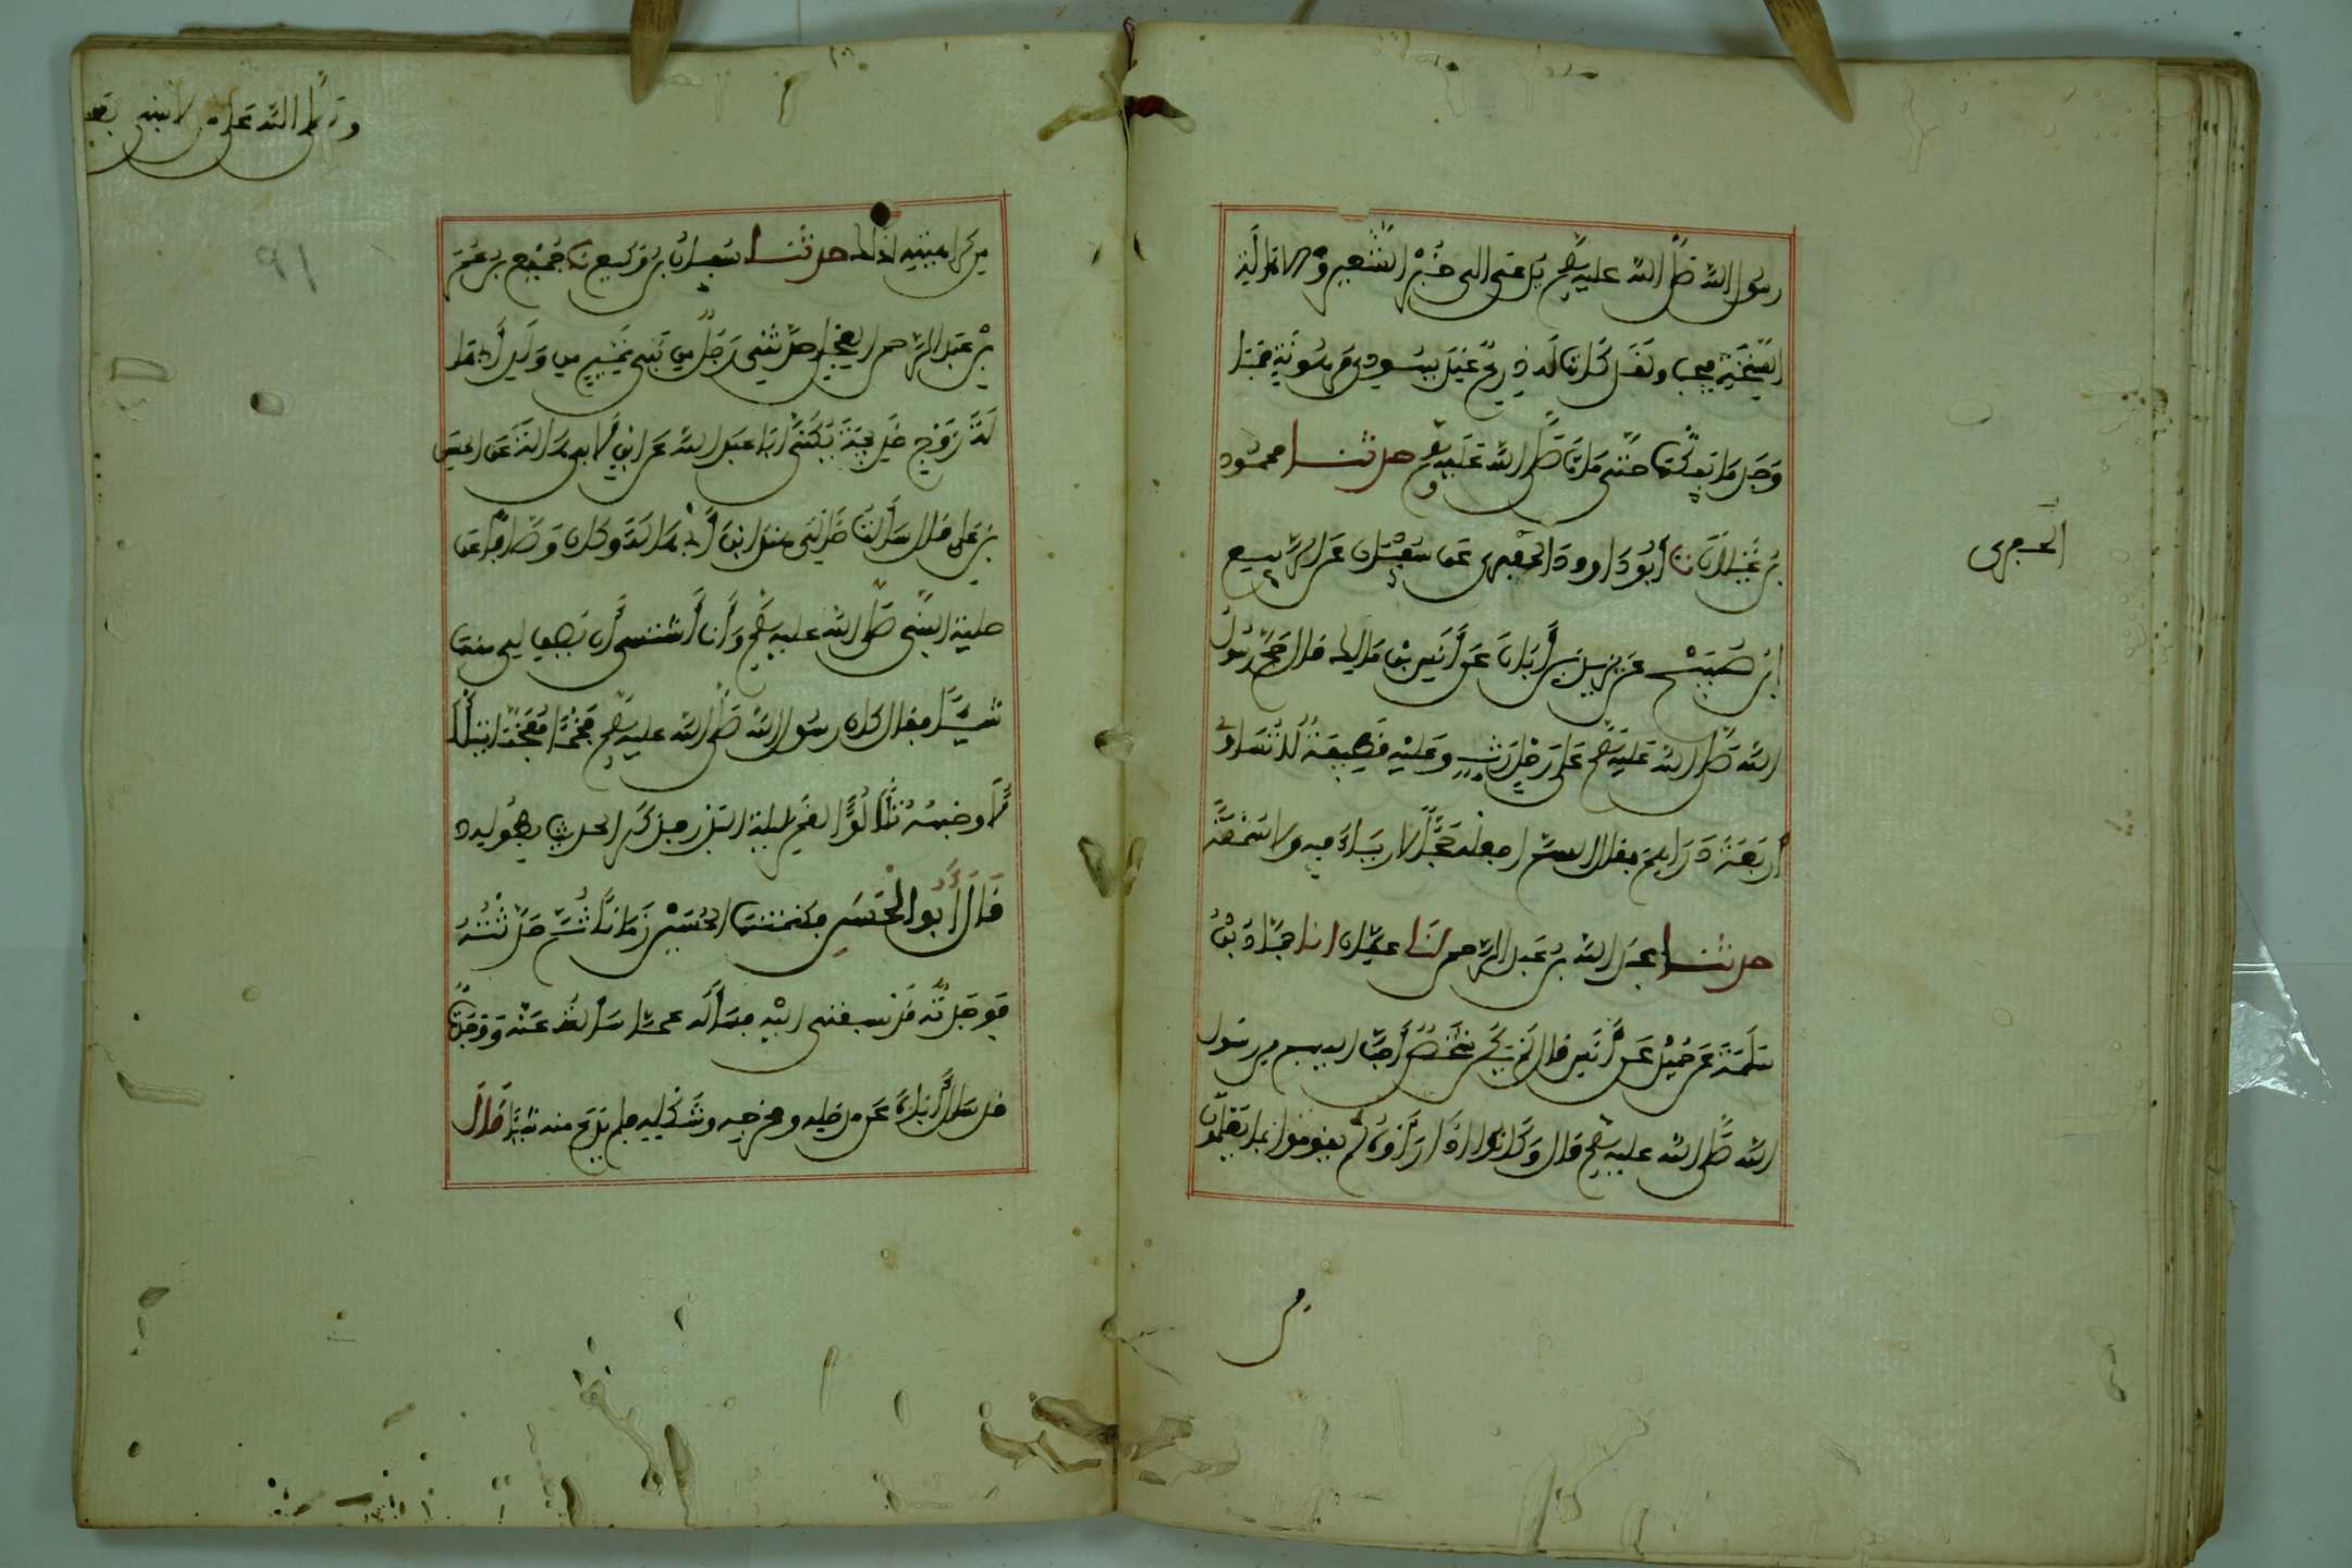 رسول الله صلى الله عليه وسلم يدعى الى خبز الشعير والاهالة
السنخة فيجيب ولقد كانت له درع عند يهودي مرهونة فما
وجد ما يفكها حتى مات صلى الله عليه وسلم حدثنا محمود
بن غيلان نا أبو داوود الحفري عن سفيان عن الربيع
ابن صبيح عن يزيد بن أبان عن أنس بن مالك قال حج رسول
الله صلى الله عليه وسلم على رحل رث وعليه قطيفة لا تساوي
أربعة دراهم فقال اللهم اجعله حجا لا رياء فيه ولا سمعة
حدثنا عبد الله بن عبد الرحمن انا عفان انا حماد بن
سلمة عن حميد عن أنس قال لم يكن شخص أحب اليهم من رسول
الله صلى الله عليه وسلم قال وكانوا اذا رأوه لم يقوموا لما يعلمون
الحفرى
من
من كراهيته لذلك حدثنا سفيان بن وكيع نا جميع بن عمر
بن عبد الرحمن العجلي حدثني رجل من بني تميم من ولد أبي هالة
زوج خديجة يكنى ابا عبد الله عن ابن لابي هالة عن الحسن
بن علي قال سألت خالي هند ابن أبي هالة وكان وصافا عن
حلية النبي صلى الله عليه وسلم وأنا أشتهي أن يصف لي منها
شيئا فقال كان رسول الله صلى الله عليه وسلم فخما مفخما يتلألأ
وجهه تلألؤ القمر ليلة البدر فذكر الحديث بطوله
قال أبو الحسن فكتمتها الحسين زمانا ثم حدثته
فوجدته قد سبقني اليه فسأله عما سألته عنه ووجدته
قد سأل أباه عن مدخله ومخرجه وشكله فلم يدع منه شيئا قال
٩١